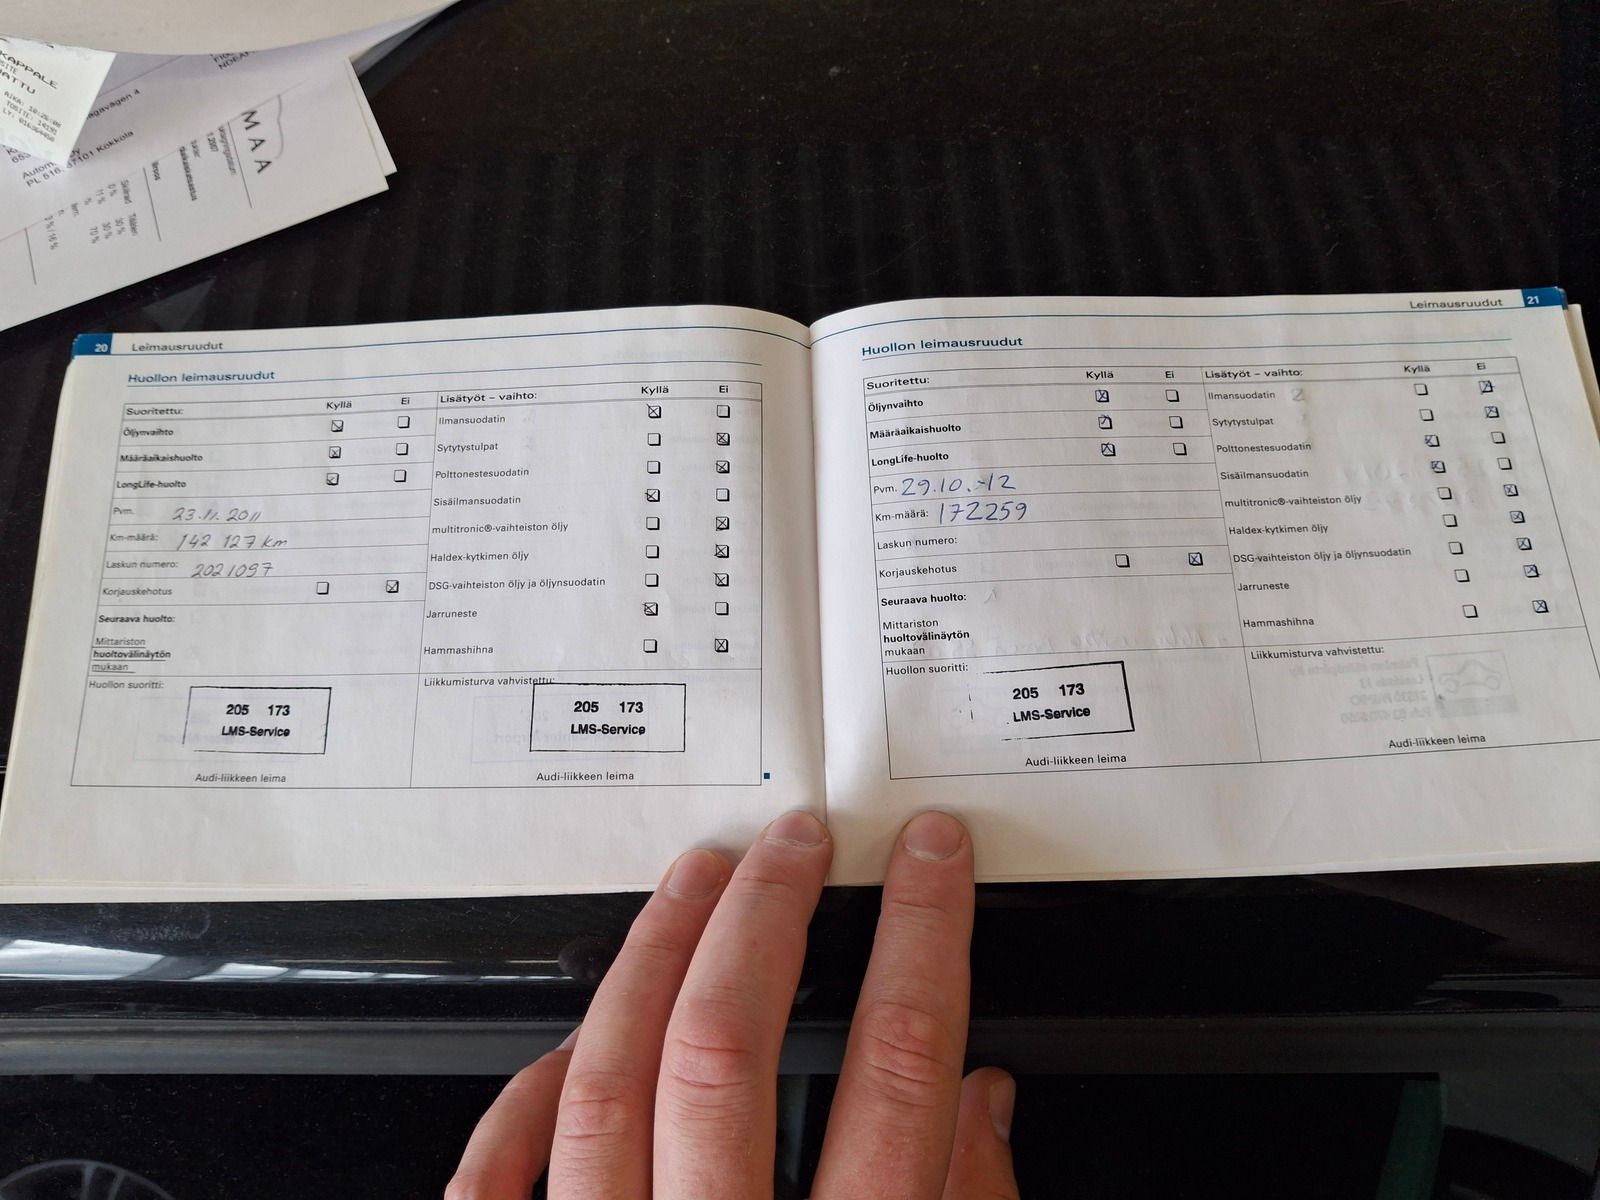 KAPPALE
AIKA: 10:26:08
TOSITE: 14191
agavägen 4
PL 516, 67101 Kokkola
MAA
1.2007
20 Leimausruudut
Huollon leimausruudut
Suoritettu: Kyllä Ei
Öljynvaihto
Määräaikaishuolto
LongLife-huolto
Pvm. 23.11.2011
Km-määrä: 142 127 km
Laskun numero: 2021097
Korjauskehotus
Seuraava huolto:
Mittariston
huoltovälinäytön
mukaan
Huollon suoritti:
205 173
LMS-Service
Audi-liikkeen leima
Lisätyöt – vaihto: Kyllä Ei
Ilmansuodatin
Sytytystulpat
Polttonestesuodatin
Sisäilmansuodatin
multitronic®-vaihteiston öljy
Haldex-kytkimen öljy
DSG-vaihteiston öljy ja öljynsuodatin
Jarruneste
Hammashihna
Liikkumisturva vahvistettu:
205 173
LMS-Service
Audi-liikkeen leima
Leimausruudut 21
Huollon leimausruudut
Suoritettu: Kyllä Ei
Öljynvaihto
Määräaikaishuolto
LongLife-huolto
Pvm. 29.10.-12
Km-määrä: 172259
Laskun numero:
Korjauskehotus
Seuraava huolto:
Mittariston
huoltovälinäytön
mukaan
Huollon suoritti:
205 173
LMS-Service
Audi-liikkeen leima
Lisätyöt – vaihto: Kyllä Ei
Ilmansuodatin
Sytytystulpat
Polttonestesuodatin
Sisäilmansuodatin
multitronic®-vaihteiston öljy
Haldex-kytkimen öljy
DSG-vaihteiston öljy ja öljynsuodatin
Jarruneste
Hammashihna
Liikkumisturva vahvistettu:
Audi-liikkeen leima